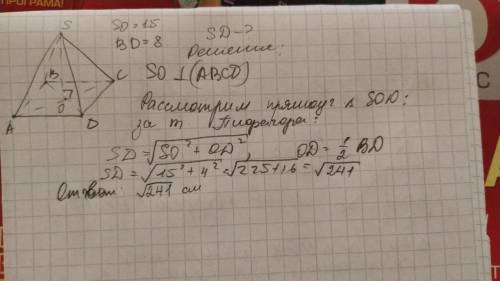 SO=15
BD=8
SD-?
Решение:
S
B
C
A
O
D
SO ⊥ (ABCD)
Рассмотрим прямоуг Δ SOD:
за т Пифагора:
SD=√SO²+OD², OD=1/2 BD
SD=√15²+4²=√225+16=√241
Ответ: √241 см